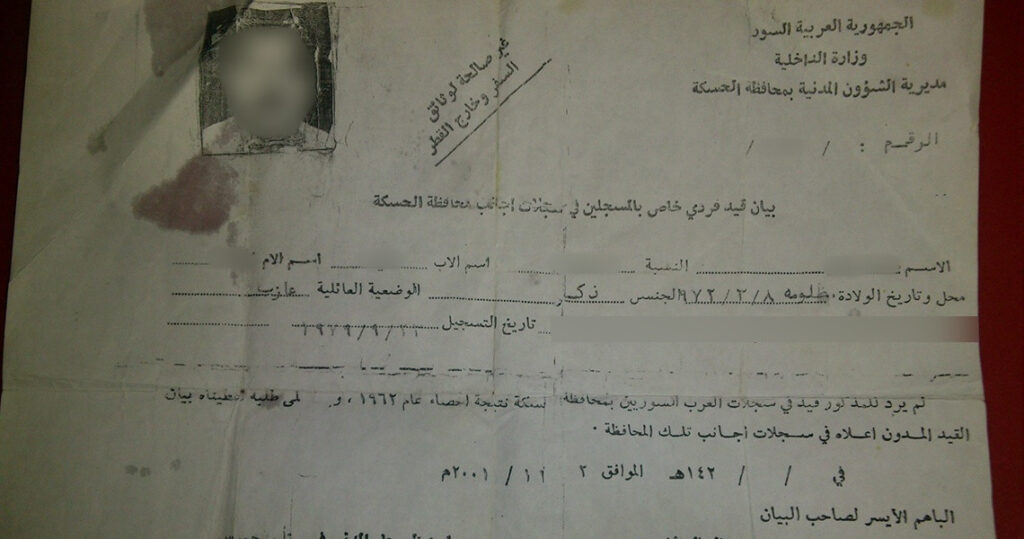 الجمهورية العربية السور
وزارة الداخلية
مديرية الشؤون المدنية بمحافظة الحسكة
الرقم : / /
غير صالحة لوثائق
السفر وخارج القطر
بيان قيد فردي خاص بالمسجلين في سجلات اجانب محافظة الحسكة
الاسم النسبة اسم الاب اسم الام
محل وتاريخ الولادة ٩٧٢/٢/٨ الجنس ذكر الوضعية العائلية عازب
تاريخ التسجيل
لم يرد للمذكور قيد في سجلات العرب السوريين بمحافظة سكة نتيجة احصاء عام ١٩٦٢ ، و لى طلبه اعطيناه بيان
القيد المدون اعلاه في سجلات أجانب تلك المحافظة .
في / / ١٤٢هـ الموافق ٢ / ١١ / ٢٠٠١م
الباهم الأيسر لصاحب البيان